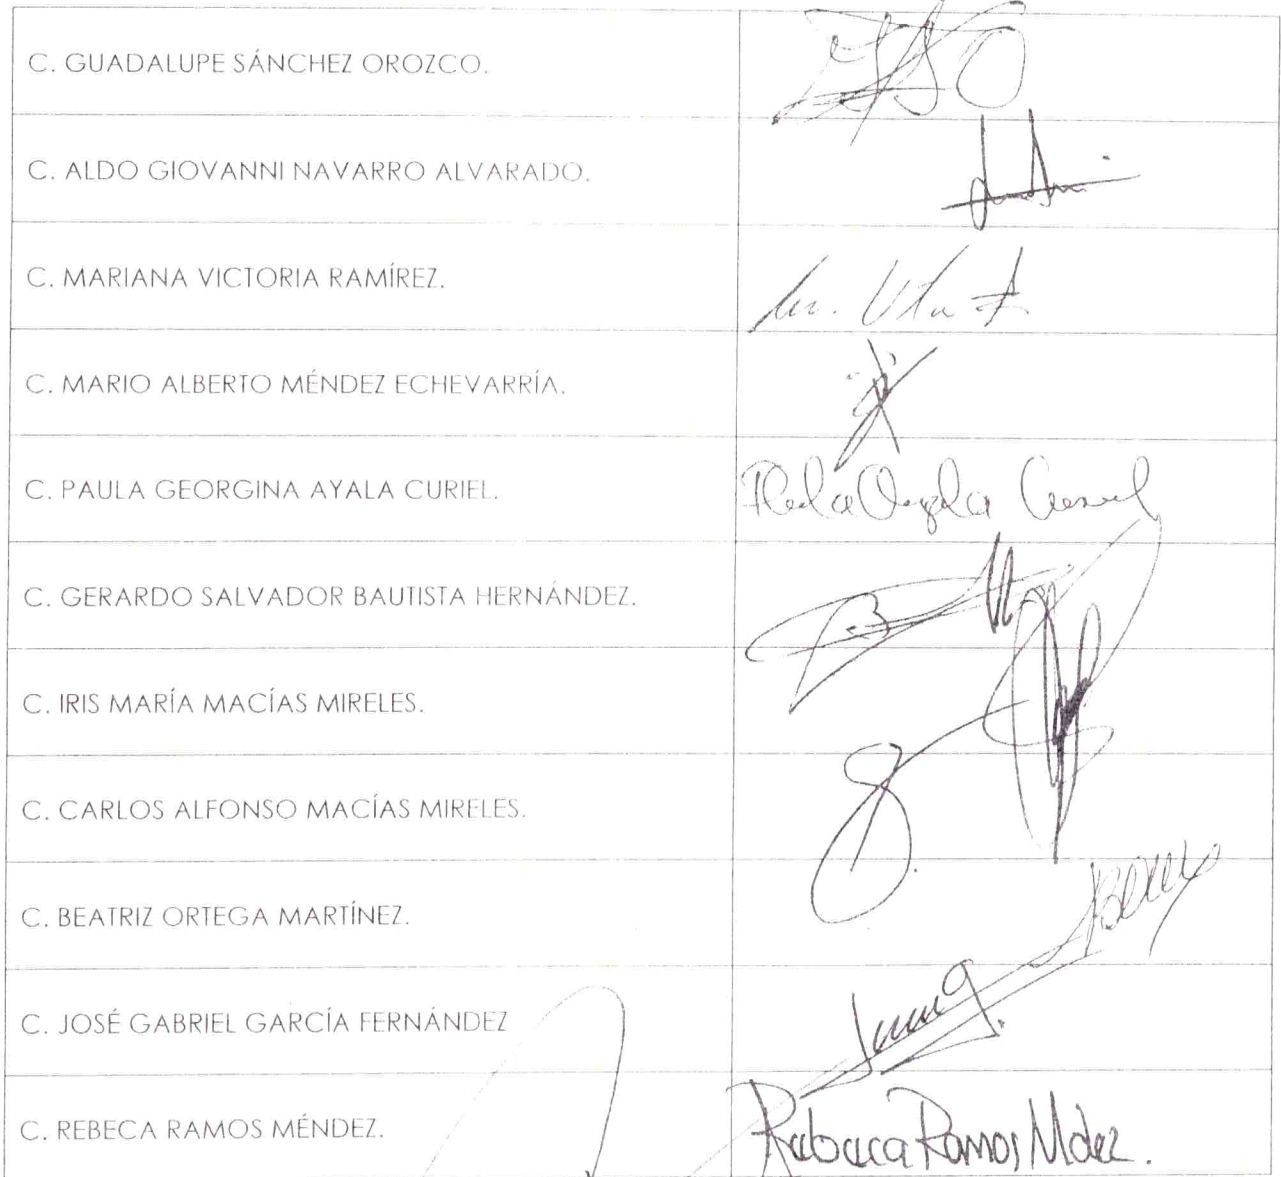 C. GUADALUPE SÁNCHEZ OROZCO.
C. ALDO GIOVANNI NAVARRO ALVARADO.
C. MARIANA VICTORIA RAMÍREZ.
C. MARIO ALBERTO MÉNDEZ ECHEVARRÍA.
C. PAULA GEORGINA AYALA CURIEL.
C. GERARDO SALVADOR BAUTISTA HERNÁNDEZ.
C. IRIS MARÍA MACÍAS MIRELES.
C. CARLOS ALFONSO MACÍAS MIRELES.
C. BEATRIZ ORTEGA MARTÍNEZ.
C. JOSÉ GABRIEL GARCÍA FERNÁNDEZ
C. REBECA RAMOS MÉNDEZ. Rebeca Ramos Mdez.